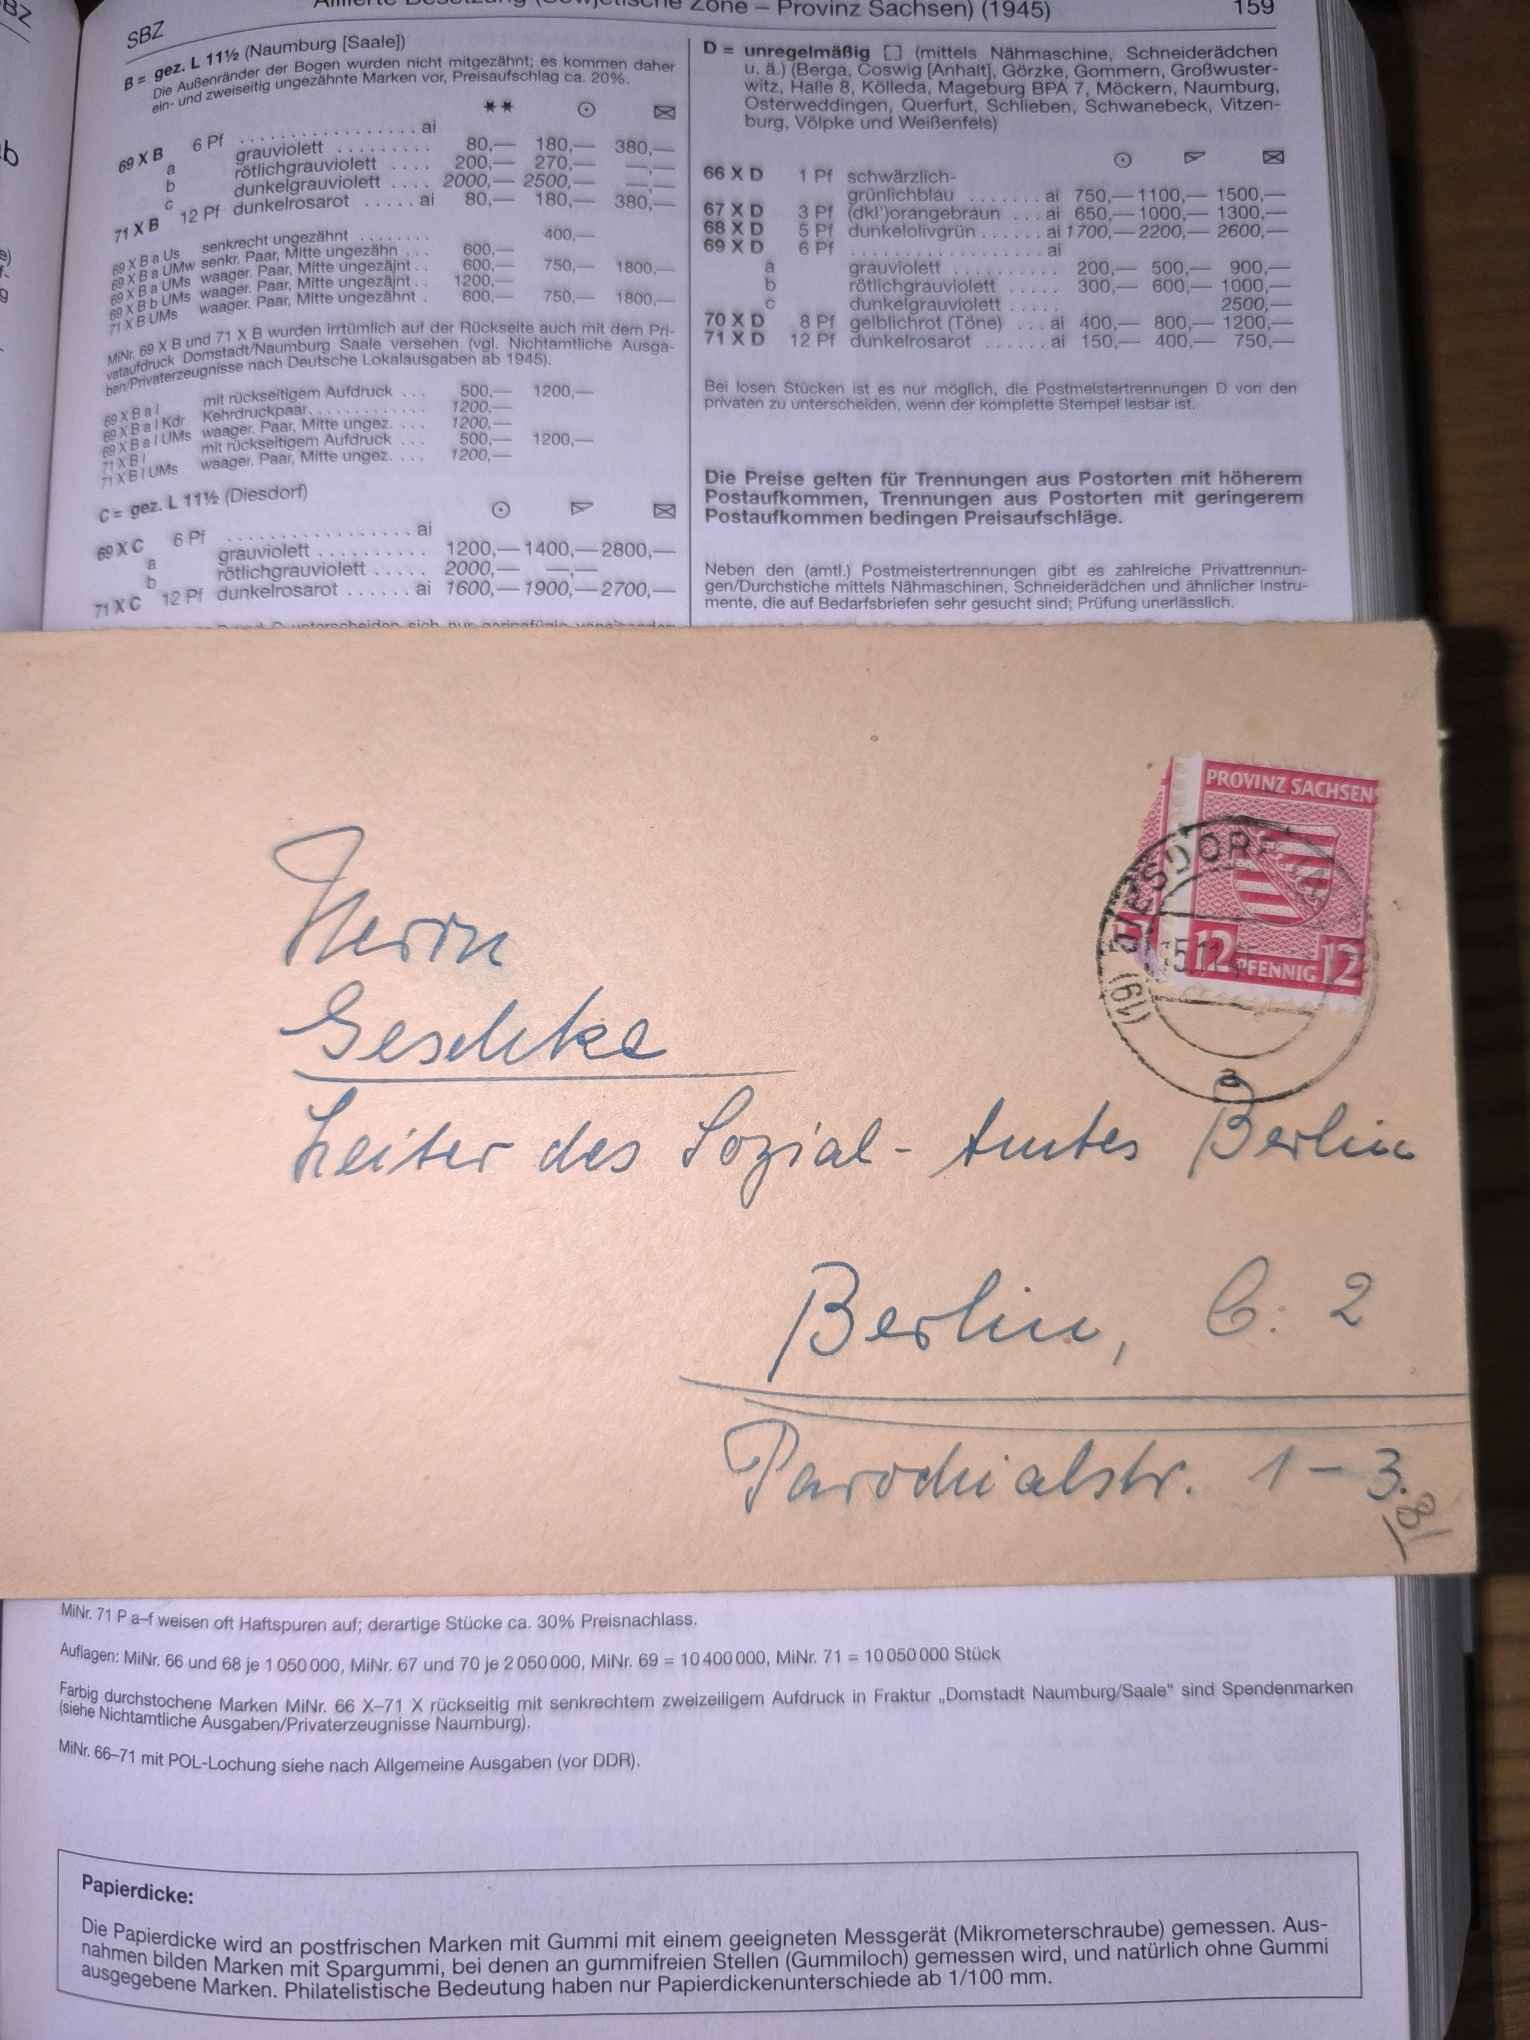 SBZ
Alliierte Besetzung (Sowjetische Zone – Provinz Sachsen) (1945)
159
B = gez. L 11½ (Naumburg [Saale])
Die Außenränder der Bogen wurden nicht mitgezähnt; es kommen daher
ein- und zweiseitig ungezähnte Marken vor, Preisaufschlag ca. 20%.
★★ ⊙ ✉
69 X B 6 Pf . . . . . . . . . . . . . . . . . ai
a grauviolett . . . . . . . . . 80,— 180,— 380,—
b rötlichgrauviolett . . . . 200,— 270,— —,—
c dunkelgrauviolett . . . . 2000,— 2500,— —,—
71 X B 12 Pf dunkelrosarot . . . . . ai 80,— 180,— 380,—
69 X B a Us senkrecht ungezähnt . . . . . . . . 400,—
69 X B a UMw senkr. Paar, Mitte ungezähn . . . 600,—
69 X B a UMs waager. Paar, Mitte ungezäjnt . . 600,— 750,— 1800,—
69 X B b UMs waager. Paar, Mitte ungezäjnt . . 1200,—
71 X B UMs waager. Paar, Mitte ungezähnt . 600,— 750,— 1800,—
MiNr. 69 X B und 71 X B wurden irrtümlich auf der Rückseite auch mit dem Pri-
vataufdruck Domstadt/Naumburg Saale versehen (vgl. Nichtamtliche Ausga-
ben/Privaterzeugnisse nach Deutsche Lokalausgaben ab 1945).
69 X B a I mit rückseitigem Aufdruck . . . 500,— 1200,—
69 X B a I Kdr Kehrdruckpaar . . . . . . . . . . . . 1200,—
69 X B a I UMs waager. Paar, Mitte ungez. . . . 1200,—
71 X B I mit rückseitigem Aufdruck . . . 500,— 1200,—
71 X B I UMs waager. Paar, Mitte ungez. . . . 1200,—
C = gez. L 11½ (Diesdorf)
69 X C 6 Pf . . . . . . . . . . . . . . . . . ai
a grauviolett . . . . . . . . . . 1200,— 1400,— 2800,—
b rötlichgrauviolett . . . . . 2000,— —,—
71 X C 12 Pf dunkelrosarot . . . . . . ai 1600,— 1900,— 2700,—
D = unregelmäßig [ ] (mittels Nähmaschine, Schneiderädchen
u. ä.) (Berga, Coswig [Anhalt], Görzke, Gommern, Großwuster-
witz, Halle 8, Kölleda, Mageburg BPA 7, Möckern, Naumburg,
Osterweddingen, Querfurt, Schlieben, Schwanebeck, Vitzen-
burg, Völpke und Weißenfels)
66 X D 1 Pf schwärzlich-
grünlichblau . . . . . . . ai 750,— 1100,— 1500,—
67 X D 3 Pf (dkl')orangebraun . . . ai 650,— 1000,— 1300,—
68 X D 5 Pf dunkelolivgrün . . . . . . ai 1700,— 2200,— 2600,—
69 X D 6 Pf . . . . . . . . . . . . . . . . . . . ai
a grauviolett . . . . . . . . . . 200,— 500,— 900,—
b rötlichgrauviolett . . . . . 300,— 600,— 1000,—
c dunkelgrauviolett . . . . . 2500,—
70 X D 8 Pf gelblichrot (Töne) . . . ai 400,— 800,— 1200,—
71 X D 12 Pf dunkelrosarot . . . . . . ai 150,— 400,— 750,—
Bei losen Stücken ist es nur möglich, die Postmeistertrennungen D von den
privaten zu unterscheiden, wenn der komplette Stempel lesbar ist.
Die Preise gelten für Trennungen aus Postorten mit höherem
Postaufkommen, Trennungen aus Postorten mit geringerem
Postaufkommen bedingen Preisaufschläge.
Neben den (amtl.) Postmeistertrennungen gibt es zahlreiche Privattrennun-
gen/Durchstiche mittels Nähmaschinen, Schneiderädchen und ähnlicher Instru-
mente, die auf Bedarfsbriefen sehr gesucht sind; Prüfung unerlässlich.
PROVINZ SACHSEN
12 PFENNIG 12
(19) DIESDORF
a
Herrn
Geschke
Leiter des Sozial-Amtes Berlin
Berlin, C. 2
Parochialstr. 1-3.
MiNr. 71 P a–f weisen oft Haftspuren auf; derartige Stücke ca. 30% Preisnachlass.
Auflagen: MiNr. 66 und 68 je 1 050 000, MiNr. 67 und 70 je 2 050 000, MiNr. 69 = 10 400 000, MiNr. 71 = 10 050 000 Stück
Farbig durchstochene Marken MiNr. 66 X–71 X rückseitig mit senkrechtem zweizeiligem Aufdruck in Fraktur „Domstadt Naumburg/Saale“ sind Spendenmarken
(siehe Nichtamtliche Ausgaben/Privaterzeugnisse Naumburg).
MiNr. 66–71 mit POL-Lochung siehe nach Allgemeine Ausgaben (vor DDR).
Papierdicke:
Die Papierdicke wird an postfrischen Marken mit Gummi mit einem geeigneten Messgerät (Mikrometerschraube) gemessen. Aus-
nahmen bilden Marken mit Spargummi, bei denen an gummifreien Stellen (Gummiloch) gemessen wird, und natürlich ohne Gummi
ausgegebene Marken. Philatelistische Bedeutung haben nur Papierdickenunterschiede ab 1/100 mm.